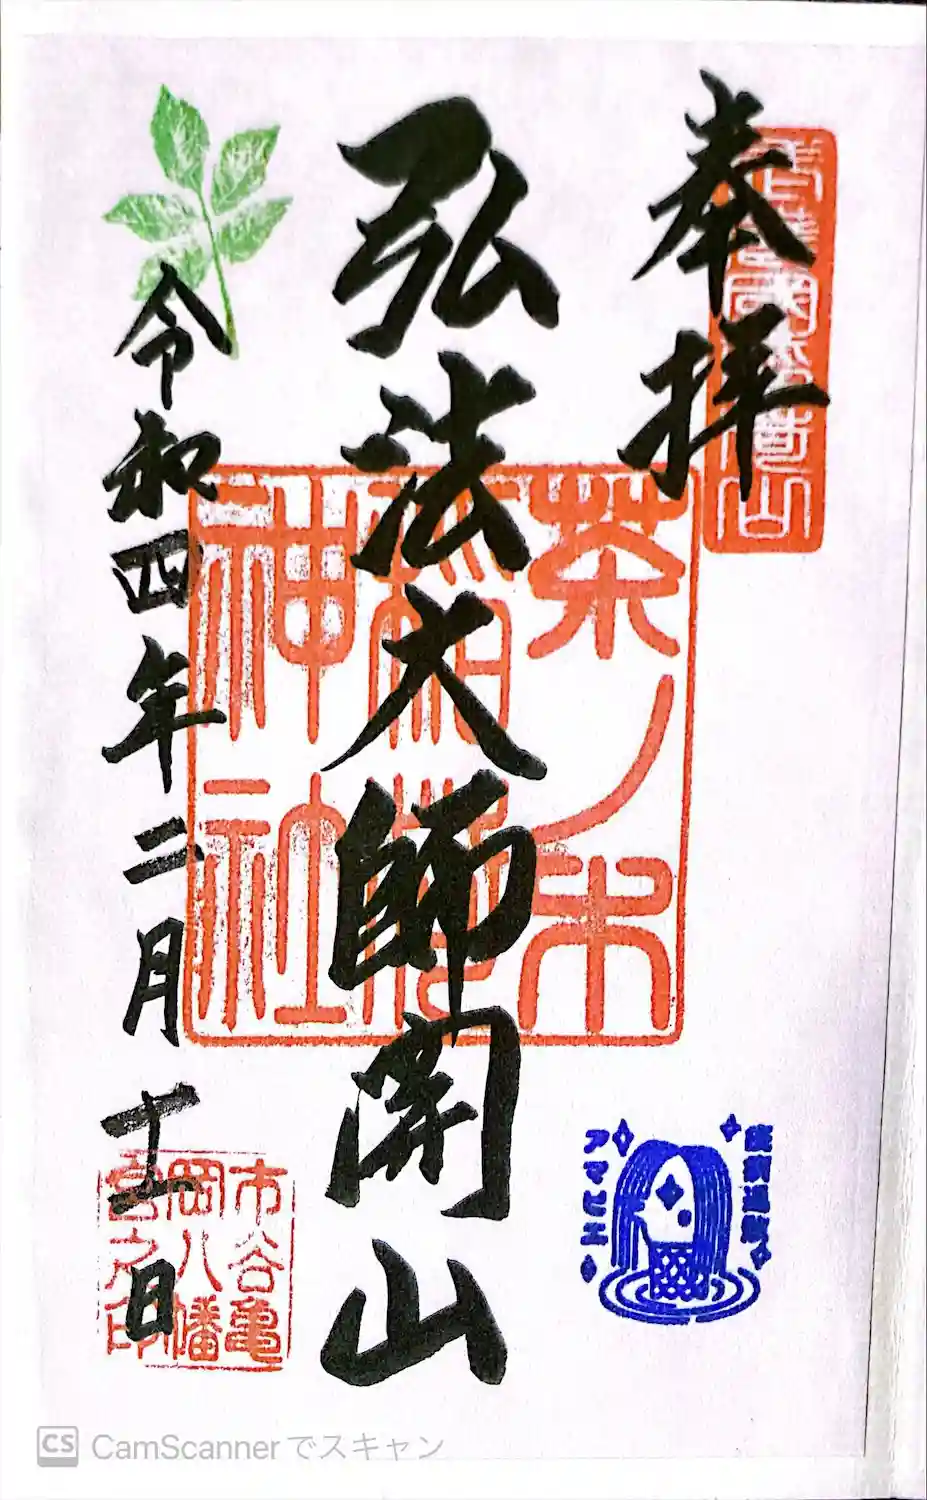 奉拝
弘法大師開山
茶ノ木
稲荷
神社
令和四年二月十一日
市谷亀
岡八幡
宮之印
CS CamScanner でスキャン